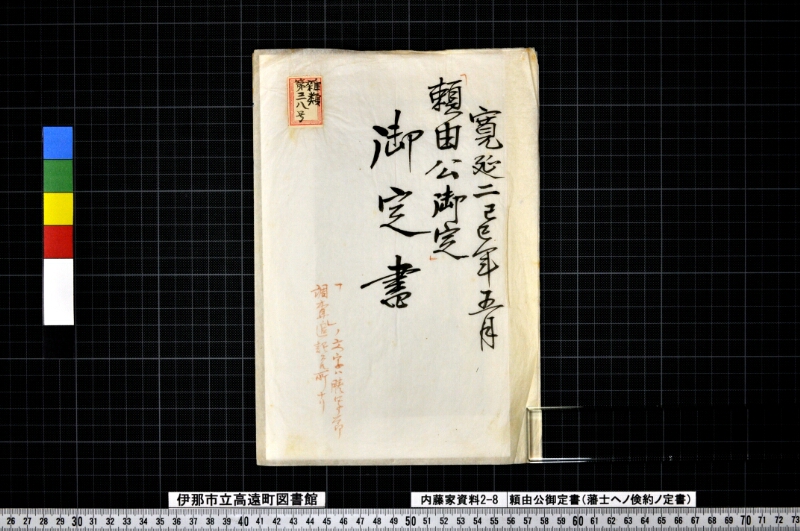 寛延二己巳年五月
「頼由公御定」
御定書
雑類
第三八号
「」ノ文字ハ勝
伊那市立高遠町図書館
内藤家資料2-8
頼由公御定書(藩士ヘノ倹約ノ定書)
26 27 28 29 30 31 32 33 34 35 36 37 38 39 40 41 42 43 44 45 46 47 48 49 50 51 52 53 54 55 56 57 58 59 60 61 62 63 64 65 66 67 68 69 70 71 72 73